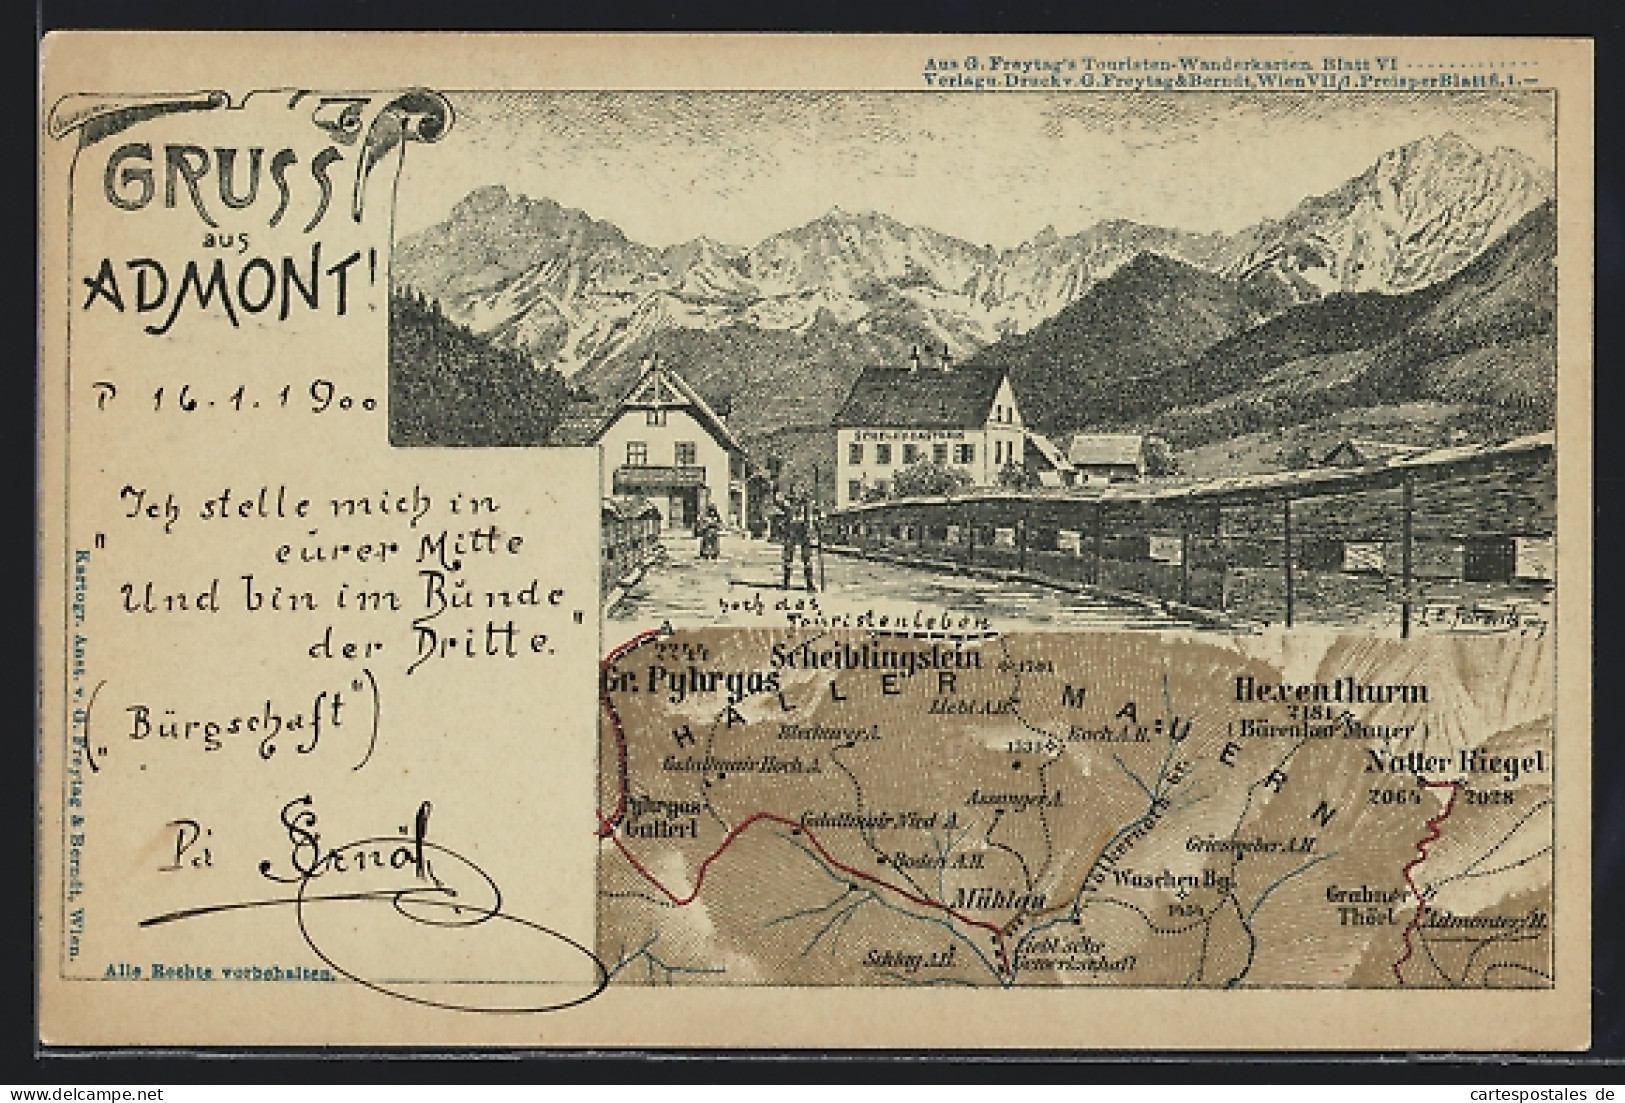 Aus G. Freytag's Touristen-Wanderkarten, Blatt VI
Verlag u. Druck v. G. Freytag & Berndt, Wien VII/1. Preis per Blatt fl. 1.—
GRUSS
aus
ADMONT!
P 16.1.1900
"Ich stelle mich in
eurer Mitte
Und bin im Bunde
der Dritte."
("Bürgschaft")
hoch das
Touristenleben
2244
Gr. Pyhrgas
Scheiblingstein
HALLER MAUERN
Hexenthurm
2181
(Bärenlau-Mauer)
Natter Riegel
2064
2028
Pyhrgas-
Gatterl
Mühlau
Waschen Bg.
Griesweber A.H.
Grabner
Thörl
Admonter H.
Boden A.H.
Koch A.H.
Liebl'sche
Gewerkschaft
Kartogr. Anst. v. G. Freytag & Berndt, Wien.
Alle Rechte vorbehalten.
cartespostales de